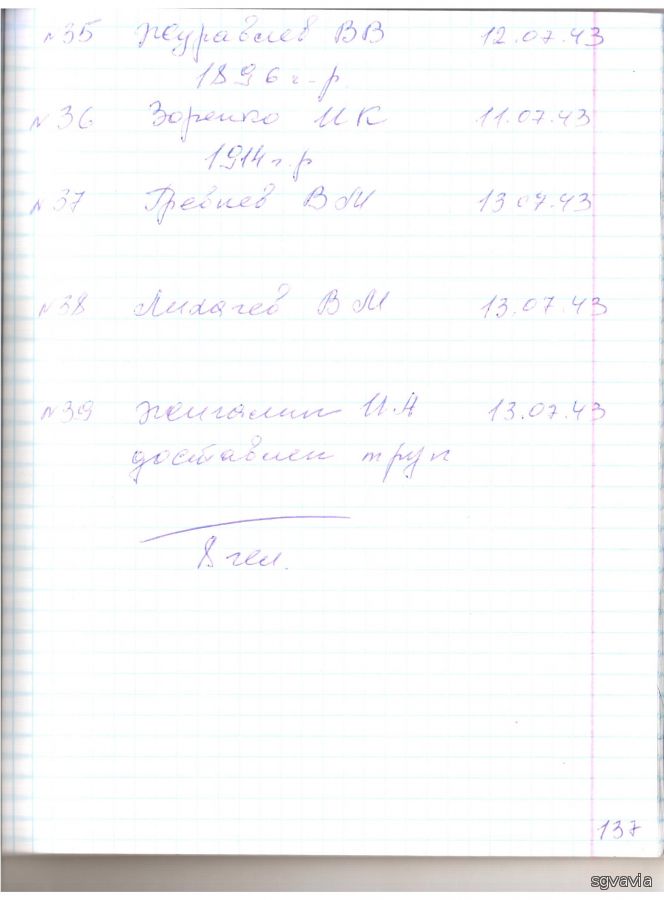 №35 Журавлев ВВ 12.07.43
1896 г.р
№36 Зоренко И К 11.07.43
1914 г.р
№37 Гребнев В М 13.07.43
№38 Лихачев В М 13.07.43
№39 Жигалин И.А 13.07.43
доставлен труп
8 чел.
137
sgvavia